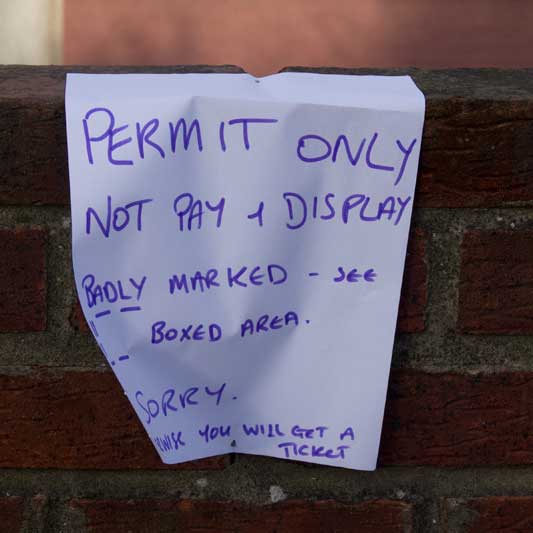 PERMIT ONLY
NOT PAY & DISPLAY
BADLY MARKED - SEE
BOXED AREA.
SORRY.
YOU WILL GET A
TICKET